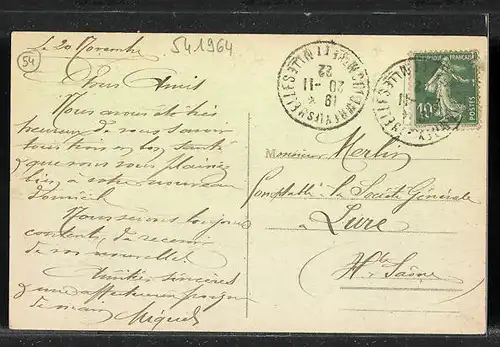 54
541964
Le 20 Novembre
Nous avons été très
heureux de vous savoir
tous trois en bon santé
et que vous vous plaisez
bien à votre nouveau
domicile
Nous serons toujours
contents, de recevoir
de vos nouvelles.
Amitiés sincères
et une affectueuse poignée
de main
20 -11
22
RÉPUBLIQUE FRANÇAISE
10c
POSTES
Monsieur Merlin
Comptable à la Société Générale
à Lure
Hte Saône